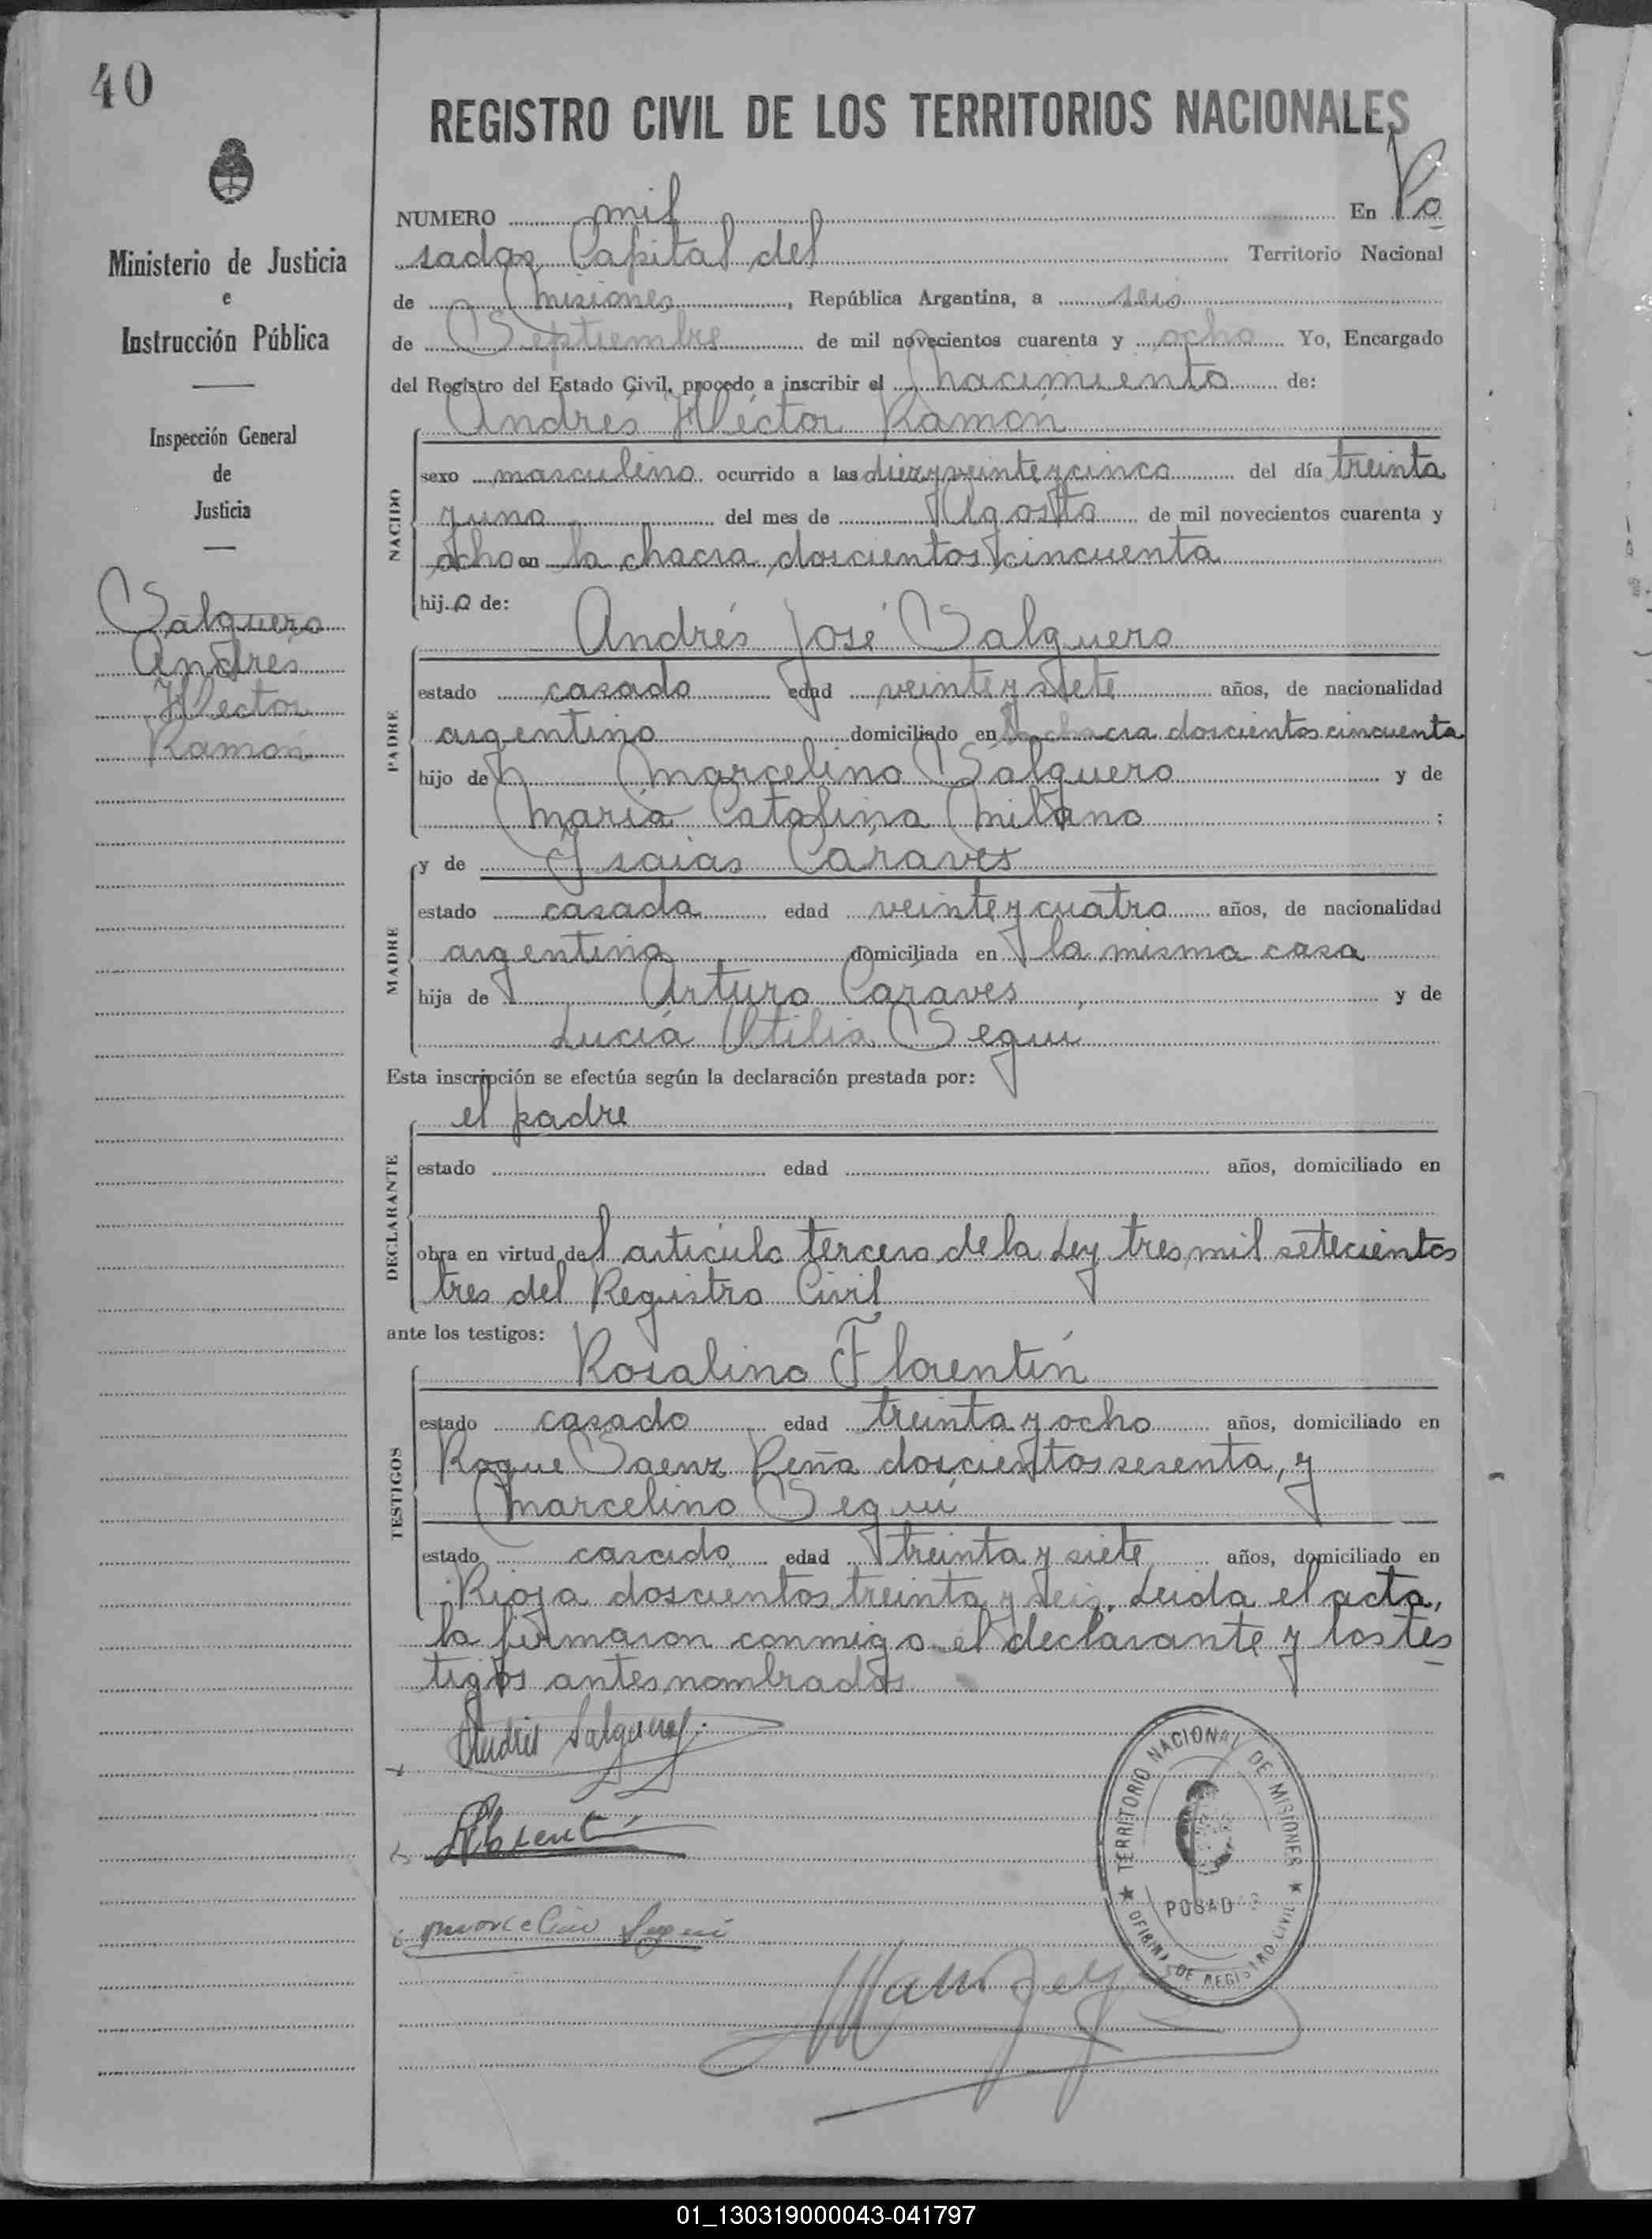 40
Ministerio de Justicia
e
Instrucción Pública
Inspección General
de
Justicia
Salguero
Andrés
Héctor
Ramón
REGISTRO CIVIL DE LOS TERRITORIOS NACIONALES
NUMERO mil En Po
sadas Capital del Territorio Nacional
de Misiones, República Argentina, a seis
de Septiembre de mil novecientos cuarenta y ocho Yo, Encargado
del Registro del Estado Civil, procedo a inscribir el nacimiento de:
Andrés Héctor Ramón
NACIDO
sexo masculino ocurrido a las diez y veinte y cinco del día treinta
y uno del mes de Agosto de mil novecientos cuarenta y
ocho en la chacra doscientos cincuenta
hijo de:
Andrés José Salguero
PADRE
estado casado edad veinte y siete años, de nacionalidad
argentino domiciliado en la chacra doscientos cincuenta
hijo de Marcelino Salguero y de
María Catalina Milano ;
y de Isaias Caraves
MADRE
estado casada edad veinte y cuatro años, de nacionalidad
argentina domiciliada en la misma casa
hija de Arturo Caraves y de
Lucía Otilia Seguí
Esta inscripción se efectúa según la declaración prestada por:
el padre
DECLARANTE
estado edad años, domiciliado en
obra en virtud del artículo tercero de la Ley tres mil setecientos
tres del Registro Civil
ante los testigos:
Rosalino Florentín
TESTIGOS
estado casado edad treinta y ocho años, domiciliado en
Roque Saenz Peña doscientos sesenta, y
Marcelino Seguí
estado casado edad treinta y siete años, domiciliado en
Rioja doscientos treinta y seis. Leida el acta,
la firmaron conmigo el declarante y los tes
tigos antes nombrados.
Andrés Salguero
Florentí
marcelino Seguí
TERRITORIO NACIONAL DE MISIONES
POSADAS
OFICINA DE REGISTRO CIVIL
01_130319000043-041797